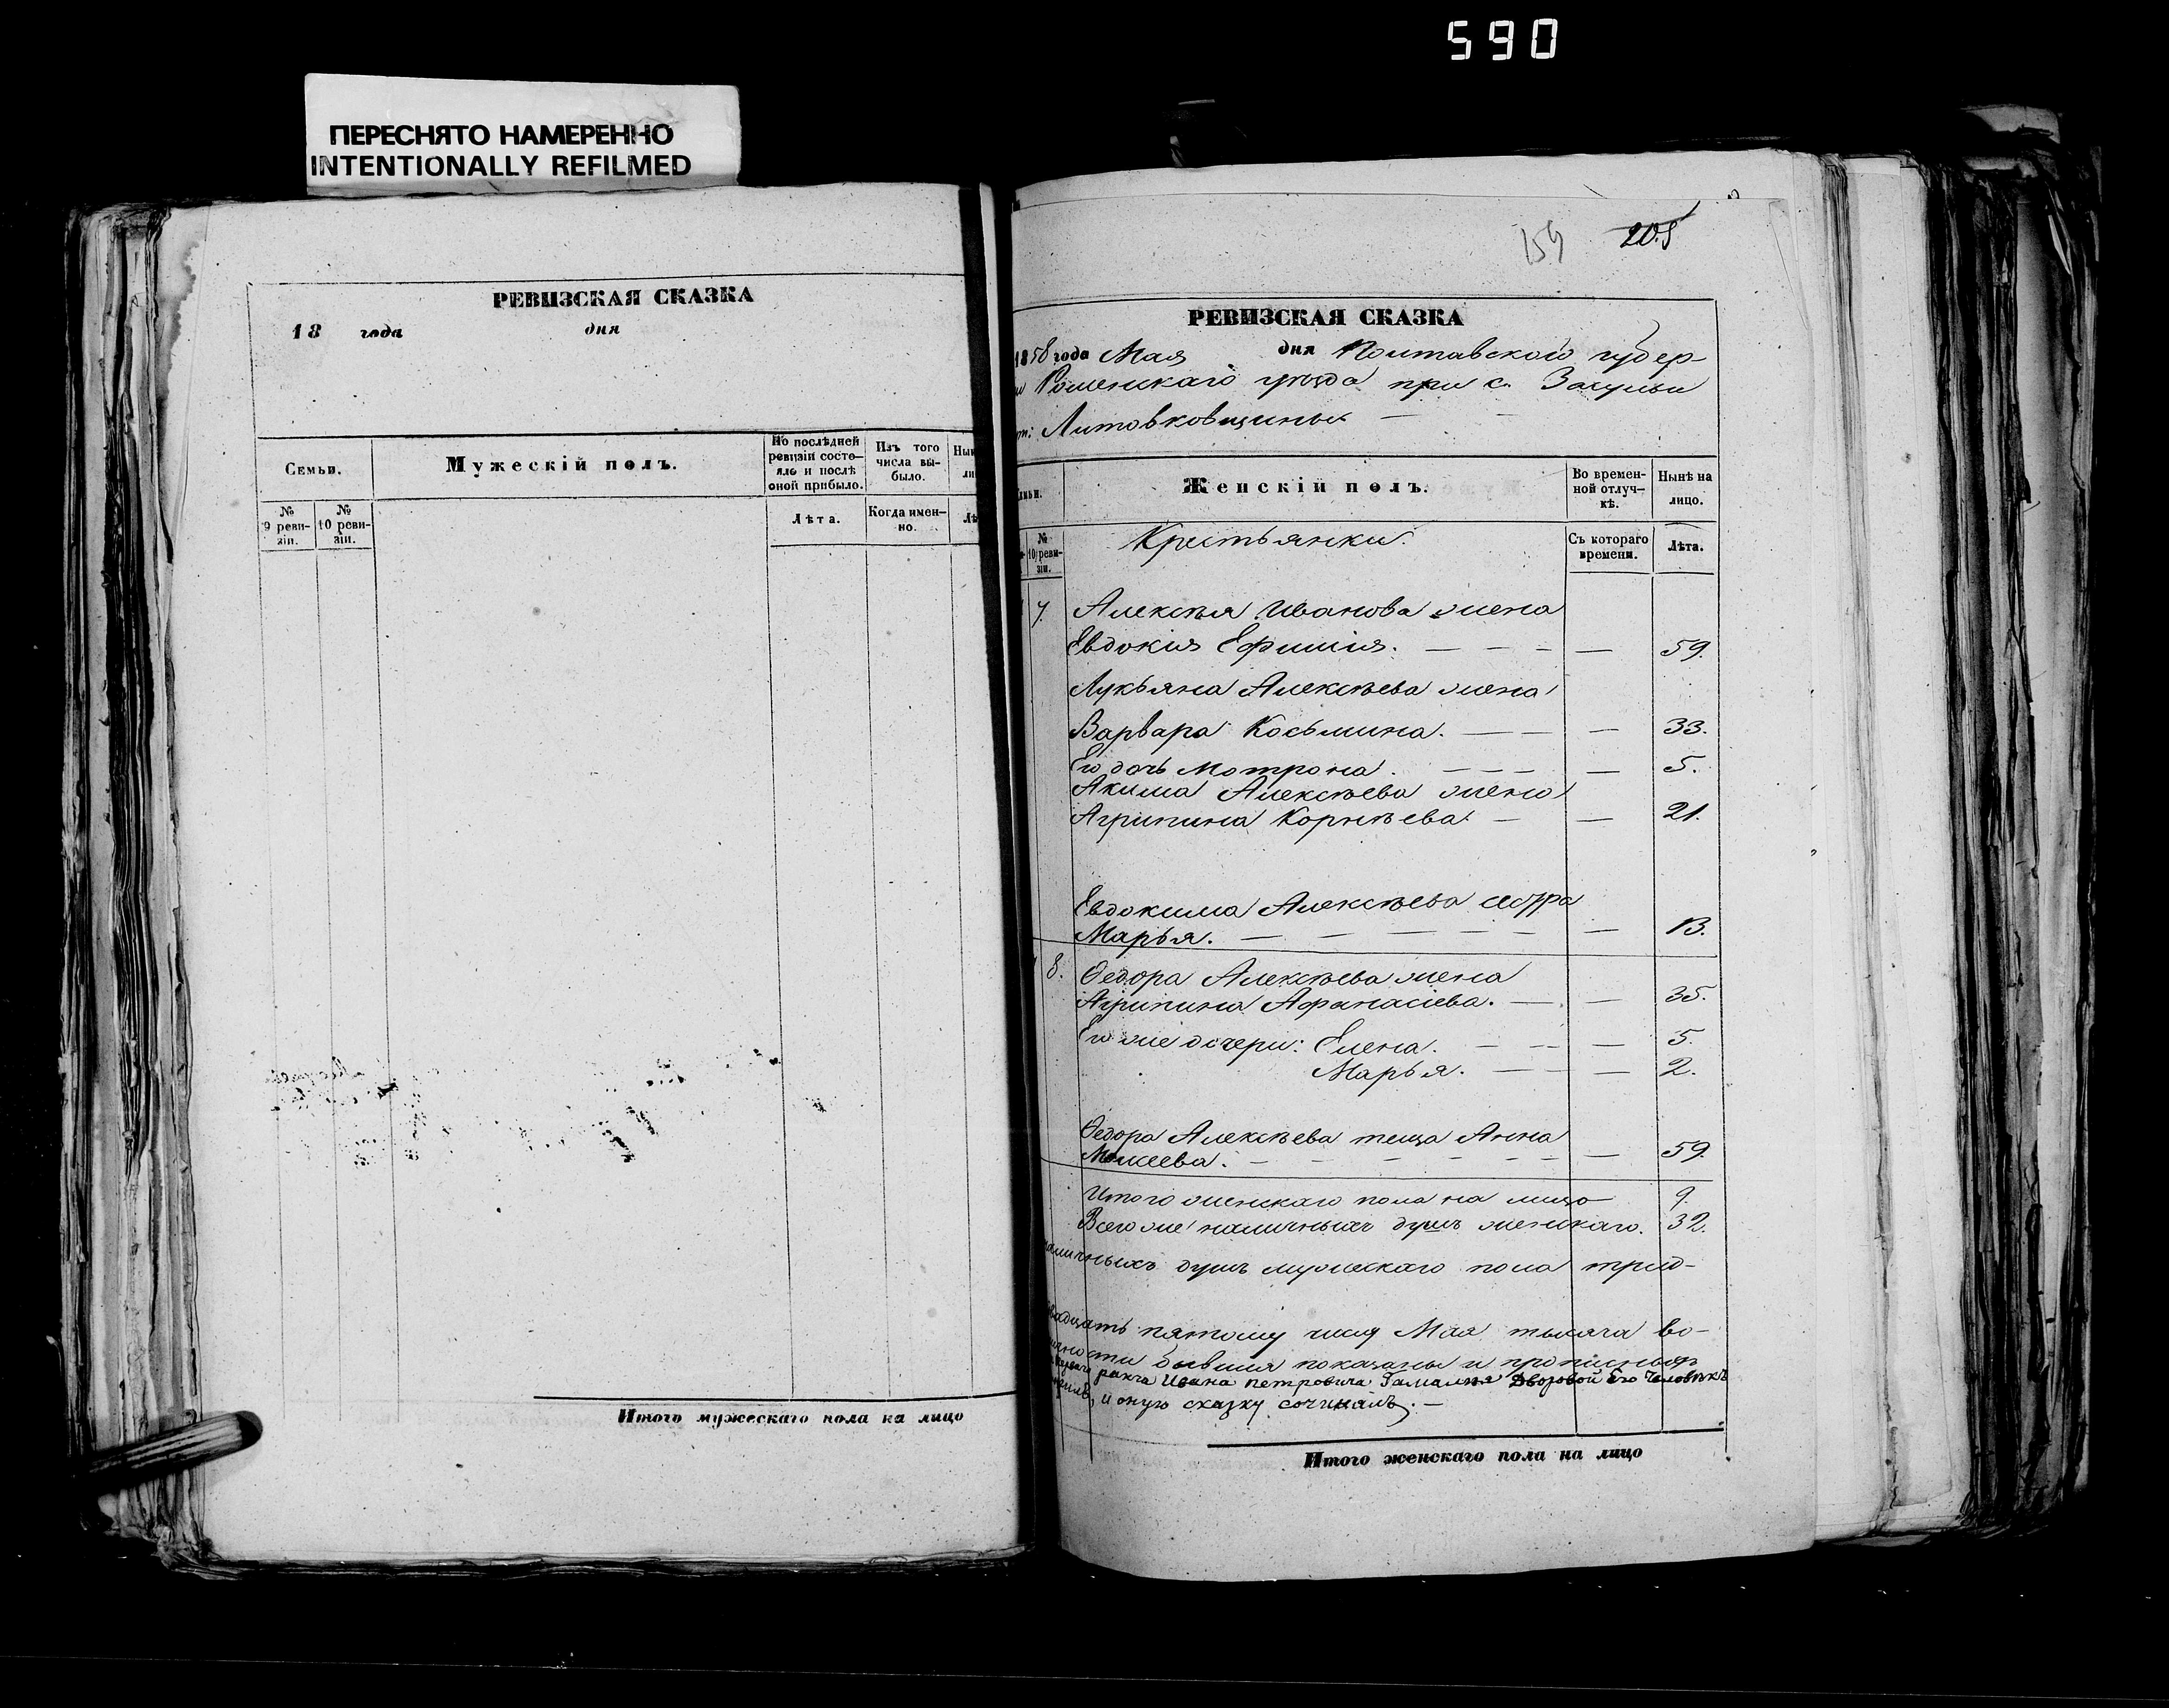 590
ПЕРЕСНЯТО НАМЕРЕННО
INTENTIONALLY REFILMED
РЕВИЗСКАЯ СКАЗКА
18 года дня
Семьи.
Мужескій полъ.
По послѣдней ревизіи состо-
яло и послѣ
оной прибыло.
Изъ того
числа вы-
было.
№
9 реви-
зіи.
№
10 реви-
зіи.
Лѣта.
Когда имен-
но.
Итого мужескаго пола на лицо
159 205
РЕВИЗСКАЯ СКАЗКА
1858 года Мая дня Полтавской губер-
Роменскаго уѣзда при с.
Литовковщины
Женскій полъ.
Во времен-
ной отлуч-
кѣ.
Нынѣ на
лицо.
№
10 реви-
зіи.
Крестьянки.
Съ котораго
времени.
Лѣта.
7. Алексѣя Иванова жена
Евдокія Ефимія. — — — — 59.
Лукьяна Алексѣева жена
Варвара Косьмина. — — — 33.
Его дочь Мотрона. — — — — 5.
Акима Алексѣева жена
Агрипина Корнѣева. — — 21.
Евдокима Алексѣева сестра
Марья. — — — — — — — 13.
8. Ѳедора Алексѣева жена
Агрипина Афанасіева. — — 35.
Его же дочери: Елена. — — — 5.
Марья. — — — 2.
Ѳедора Алексѣева теща Анна
Мокеева. — — — — — — — 59.
Итого женскаго пола на лицо 9.
Всего же наличныхъ душъ женскаго. 32.
наличныхъ душъ мужескаго пола трид-
пятому числу Мая тысяча во-
бывшія показаны и
Ивана Петровича Гамалѣя Дворовой Его Человѣкъ
и оную сказку сочинялъ. —
Итого женскаго пола на лицо